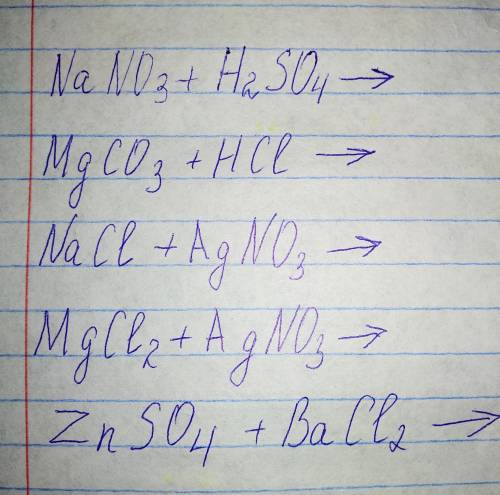 NaNO3 + H2SO4 →
MgCO3 + HCl →
NaCl + AgNO3 →
MgCl2 + AgNO3 →
ZnSO4 + BaCl2 →